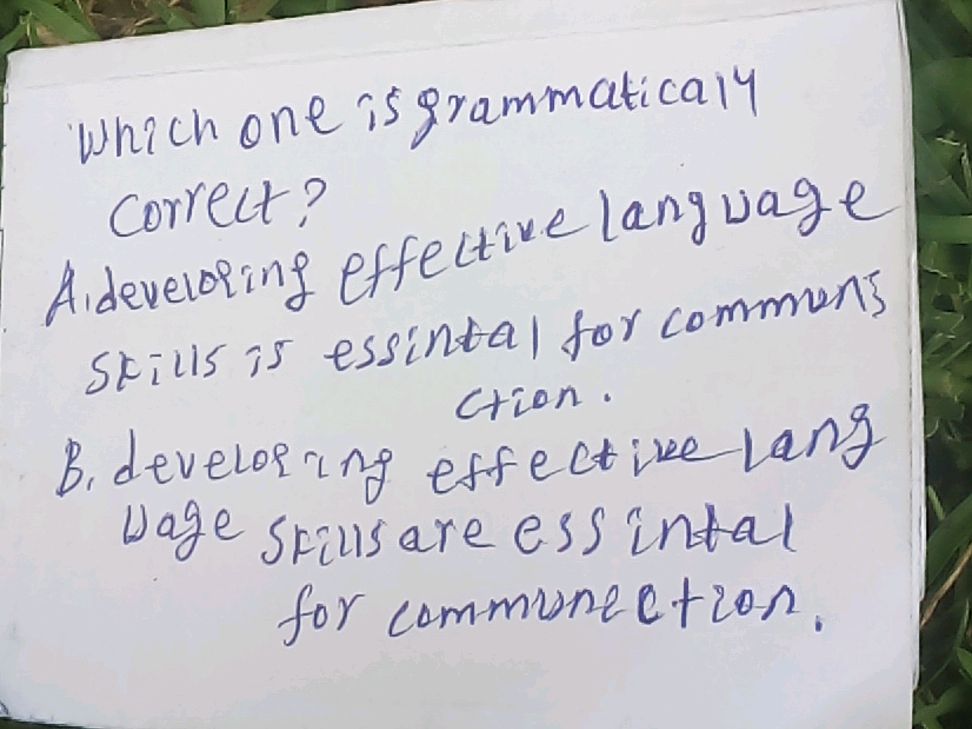 Which one is grammaticaly
correct?
A. developing effective language
skills is essintal for communi
ction.
B. developing effective lang
uage skills are essintal
for communection.